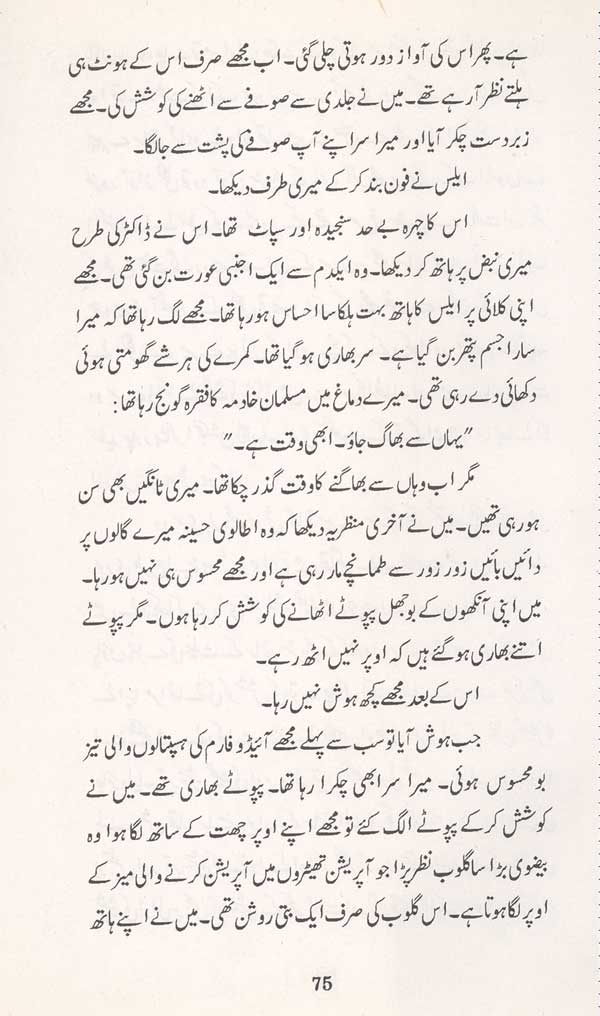 ہے۔ پھر اس کی آواز دور ہوتی چلی گئی۔ اب مجھے صرف اس کے ہونٹ ہی
ہلتے نظر آ رہے تھے۔ میں نے جلدی سے صوفے سے اٹھنے کی کوشش کی۔ مجھے
زبردست چکر آیا اور میرا سر اپنے آپ صوفے کی پشت سے جا لگا۔
ایلس نے فون بند کر کے میری طرف دیکھا۔
اس کا چہرہ بے حد سنجیدہ اور سپاٹ تھا۔ اس نے ڈاکٹر کی طرح
میری نبض پر ہاتھ رکھ کر دیکھا۔ وہ ایکدم سے ایک اجنبی عورت بن گئی تھی۔ مجھے
اپنی کلائی پر ایلس کا ہاتھ بہت ہلکا سا احساس ہو رہا تھا۔ مجھے لگ رہا تھا کہ میرا
سارا جسم پتھر بن گیا ہے۔ سر بھاری ہو گیا تھا۔ کمرے کی ہر شے گھومتی ہوئی
دکھائی دے رہی تھی۔ میرے دماغ میں مسلمان خادمہ کا فقرہ گونج رہا تھا:
"یہاں سے بھاگ جاؤ۔ ابھی وقت ہے۔"
مگر اب وہاں سے بھاگنے کا وقت گذر چکا تھا۔ میری ٹانگیں بھی سن
ہو رہی تھیں۔ میں نے آخری منظر یہ دیکھا کہ وہ اطالوی حسینہ میرے گالوں پر
دائیں بائیں زور زور سے طمانچے مار رہی ہے اور مجھے محسوس ہی نہیں ہو رہا۔
میں اپنی آنکھوں کے بوجھل پپوٹے اٹھانے کی کوشش کر رہا ہوں۔ مگر پپوٹے
اتنے بھاری ہو گئے ہیں کہ اوپر نہیں اٹھ رہے۔
اس کے بعد مجھے کچھ ہوش نہیں رہا۔
جب ہوش آیا تو سب سے پہلے مجھے آئیڈو فارم کی ہسپتالوں والی تیز
بو محسوس ہوئی۔ میرا سر ابھی چکرا رہا تھا۔ پپوٹے بھاری تھے۔ میں نے
کوشش کر کے پپوٹے الگ کئے تو مجھے اپنے اوپر چھت کے ساتھ لگا ہوا وہ
بیضوی بڑا سا گلوب نظر پڑا جو آپریشن تھیٹروں میں آپریشن کرنے والی میز کے
اوپر لگا ہوتا ہے۔ اس گلوب کی صرف ایک بتی روشن تھی۔ میں نے اپنے ہاتھ
75